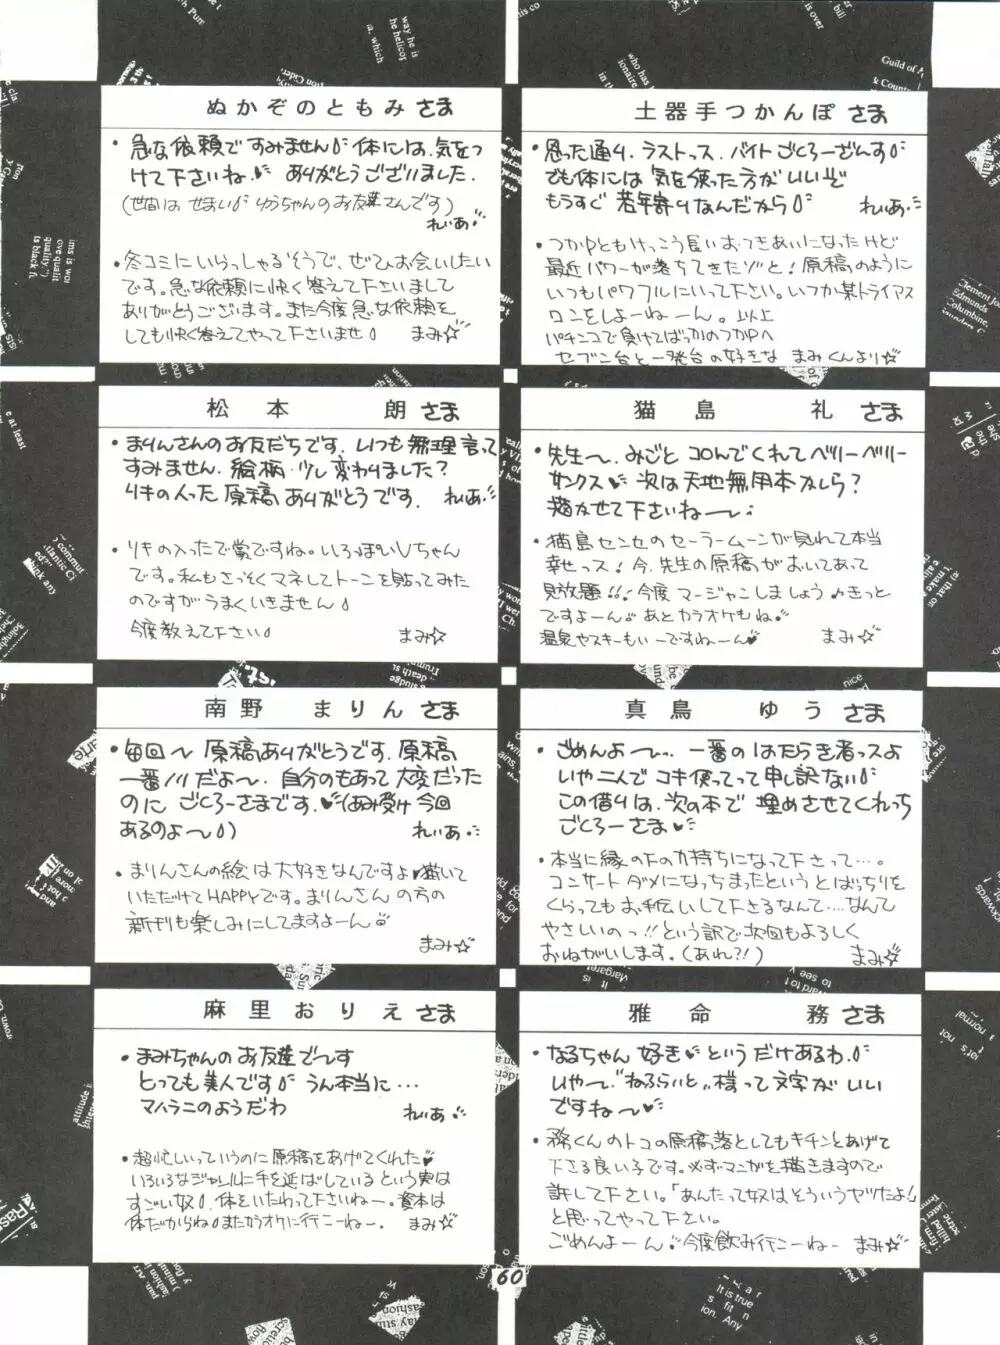 ぬかぞのともみさま
・急な依頼ですみません 体には、気をつ
けて下さいね♥ ありがとうございました。
(世間は せまい ゆうちゃんのお友達さんです)
れいあ
・冬コミにいらっしゃるそうで、ぜひお会いしたい
です。急な依頼に快く答えて下さいまして
ありがとうございます。また今度急な依頼を
しても快く答えてやって下さいませ
まみ☆
土器手つかんぽさま
・思った通り、ラストっス、バイトごくろーざんす
でも体には気を使った方がいいぞ
もうすぐ 若年寄りなんだから
れいあ
・つかPともけっこう長いおつきあいになったけど
最近パワーが落ちてきたゾと!原稿のように
いつもパワフルにいって下さい。いつか某トライアス
ロンをしよーねーん。以上
パチンコで負けてばっかのつかPへ
セブン台と一発台の好きな まみくんより☆
松本 朗さま
・まりんさんのお友だちです。いつも無理言って
すみません。絵柄・少し変わりました?
リキの入った原稿ありがとうです。 れいあ
・リキの入ったで賞ですね。いろっぽいVちゃん
です。私もさっそくマネしてトーンを貼ってみた
のですがうまくいきません
今度教えて下さい
まみ☆
猫島 礼さま
・先生〜。みごとコロんでくれてベリーベリー
サンクス♥ 次は天地無用本かしら?
描かせて下さいね〜
・猫島センセのセーラームーンが見れて本当
幸せっス!今、先生の原稿がおいてあって
見放題!!今度マージャンしましょう♪きっと
ですよーん あとカラオケもね
温泉やスキーもいーですねーん♥
まみ☆
南野 まりんさま
・毎回〜 原稿ありがとうです。原稿
一番ノリだよ〜。自分のもあって大変だった
のに ごくろーさまです。♥(あみ受け 今回
あるのよ〜)
れいあ
・まりんさんの絵は大好きなんですよ♥描いて
いただけてHAPPYです。まりんさんの方の
新刊も楽しみにしてますよーん
まみ☆
真鳥 ゆうさま
・ごめんよ〜。一番のはたらき者っスよ
いや二人でコキ使ってって申し訳ない
この借りは、次の本で 埋めさせてくれっち
ごくろーさま♥
・本当に縁の下の力持ちになって下さって…。
コンサートダメになっちまったというとばっちりを
くらってもお手伝いして下さるなんて…なんて
やさしいのっ!!という訳で次回もよろしく
おねがいします。(あれ?!)
まみ☆
麻里おりえさま
・まみちゃんのお友達で〜す
とっても美人です うん本当に…
マハラニのようだわ
れいあ
・超忙しいっていうのに原稿をあげてくれた♥
いろいろなジャンルに手を延ばしているという実は
すごい奴 体をいたわって下さいねー。資本は
体だからね またカラオケに行こーねー。 まみ☆
雅命 務さま
・なるちゃん 好き♥というだけあるわ
いや〜 “ねるらいと„ 様って文字がいい
ですね〜♥
・務くんのトコの原稿落としてもキチンとあげて
下さる良い子です。必ずマンガを描きますので
許して下さい。「あんたって奴はそういうヤツだよ!」
と思ってやって下さい。
ごめんよーん 今度飲み行こーねー まみ☆
60